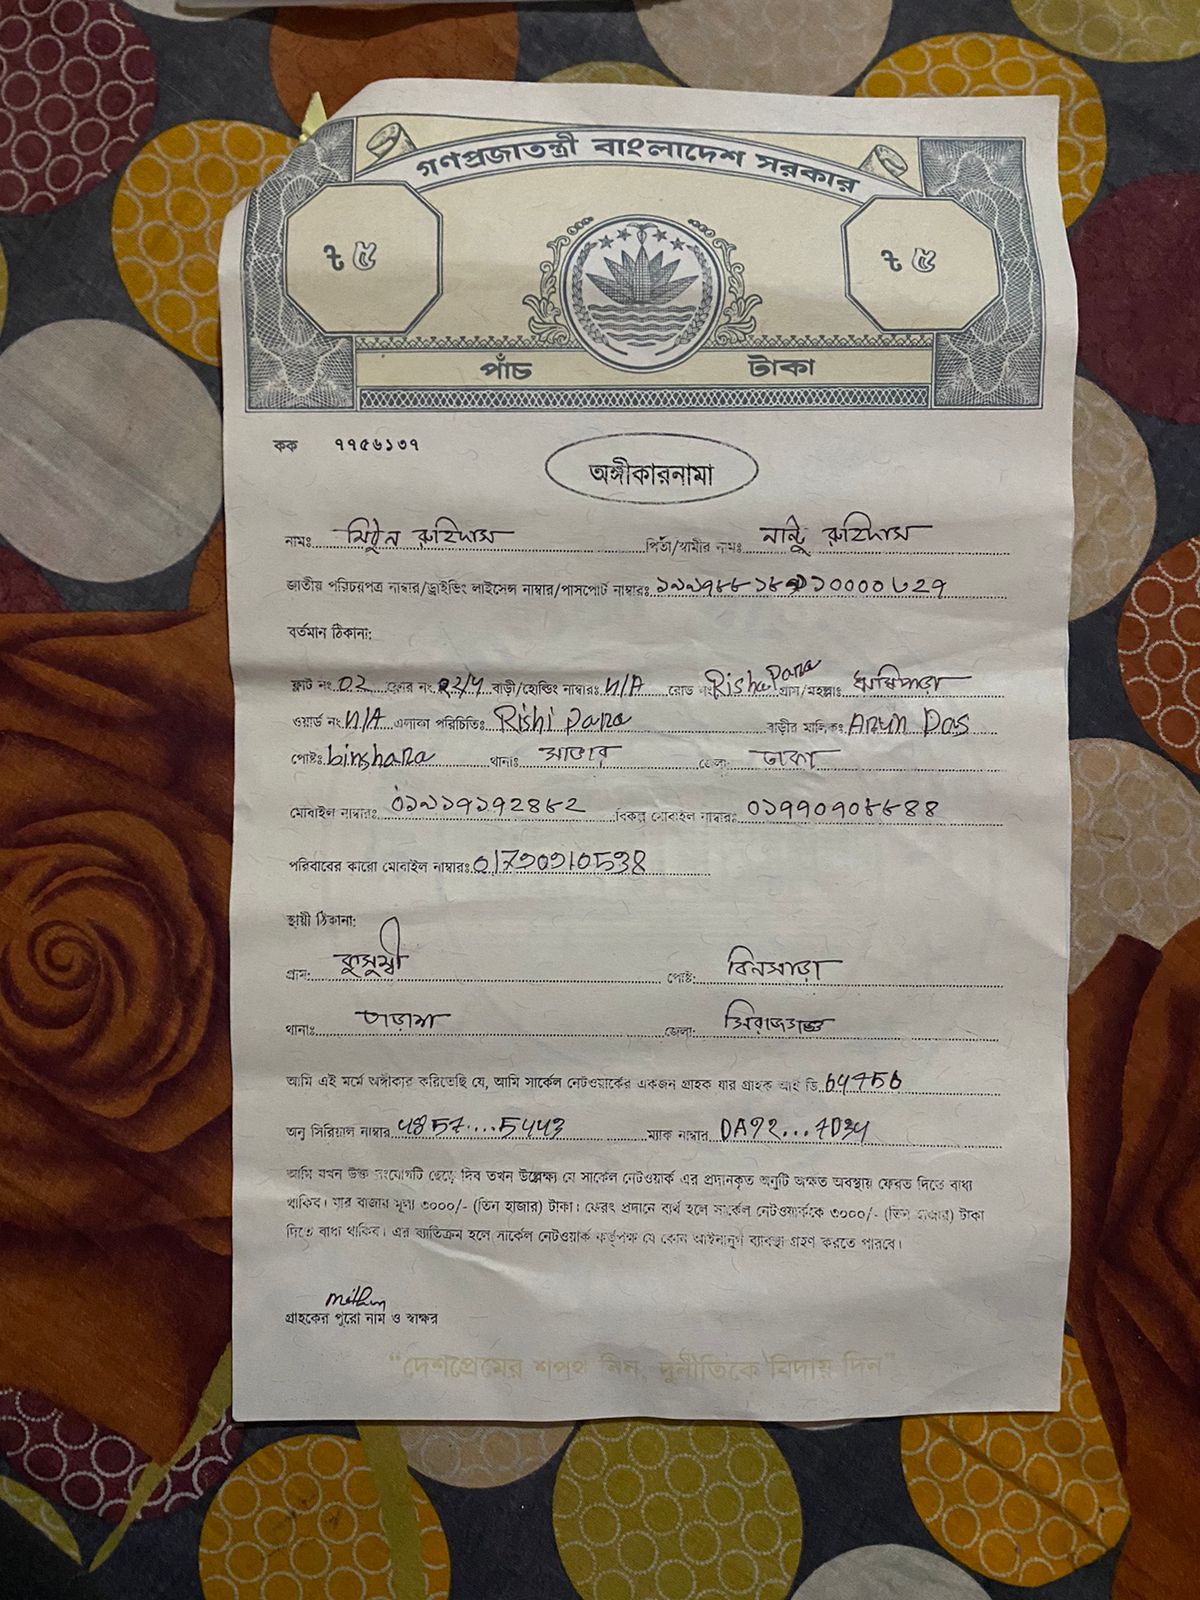 গণপ্রজাতন্ত্রী বাংলাদেশ সরকার
৳ ৫ ৳ ৫
পাঁচ টাকা
কক ৭৭৫৬১৩৭
অঙ্গীকারনামা
নামঃ মিঠুন রুহিদাস পিতা/স্বামীর নামঃ নান্টু রুহিদাস
জাতীয় পরিচয়পত্র নাম্বার/ড্রাইভিং লাইসেন্স নাম্বার/পাসপোর্ট নাম্বারঃ
বর্তমান ঠিকানা:
ফ্লাট নং 02 ফ্লোর নং বাড়ী/হোল্ডিং নাম্বারঃ N/A রোড নং Rishi Para গ্রাম/মহল্লাঃ ঋষিপাড়া
ওয়ার্ড নং N/A এলাকা পরিচিতিঃ Rishi para বাড়ীর মালিকঃ Arun Das
পোষ্টঃ binshara থানাঃ সাভার জেলা: ঢাকা
মোবাইল নাম্বারঃ ০১৯১৭১৭২৪৮২ বিকল্প মোবাইল নাম্বারঃ ০১৭৭০৭০৮৮৪৪
পরিবারের কারো মোবাইল নাম্বারঃ
স্থায়ী ঠিকানা:
গ্রাম: কুসুম্বী পোষ্ট: বিনসাড়া
থানাঃ তাড়াশ জেলা: সিরাজগঞ্জ
আমি এই মর্মে অঙ্গীকার করিতেছি যে, আমি সার্কেল নেটওয়ার্কের একজন গ্রাহক যার গ্রাহক আই ডি
অনু সিরিয়াল নাম্বার 4857....5443 ম্যাক নাম্বার DA92...7D34
আমি যখন উক্ত সংযোগটি ছেড়ে দিব তখন উল্লেক্ষ্য যে সার্কেল নেটওয়ার্ক এর প্রদানকৃত অনুটি অক্ষত অবস্থায় ফেরত দিতে বাধ্য
থাকিব। যার বাজার মূল্য ৩০০০/- (তিন হাজার) টাকা। ফেরৎ প্রদানে ব্যর্থ হলে সার্কেল নেটওয়ার্ককে ৩০০০/- (তিন হাজার) টাকা
দিতে বাধ্য থাকিব। এর ব্যতিক্রম হলে সার্কেল নেটওয়ার্ক কর্তৃপক্ষ যে কোন আইনানুগ ব্যাবস্থা গ্রহণ করতে পারবে।
mithun
গ্রাহকের পুরো নাম ও স্বাক্ষর
“দেশপ্রেমের শপথ নিন, দুর্নীতিকে বিদায় দিন”